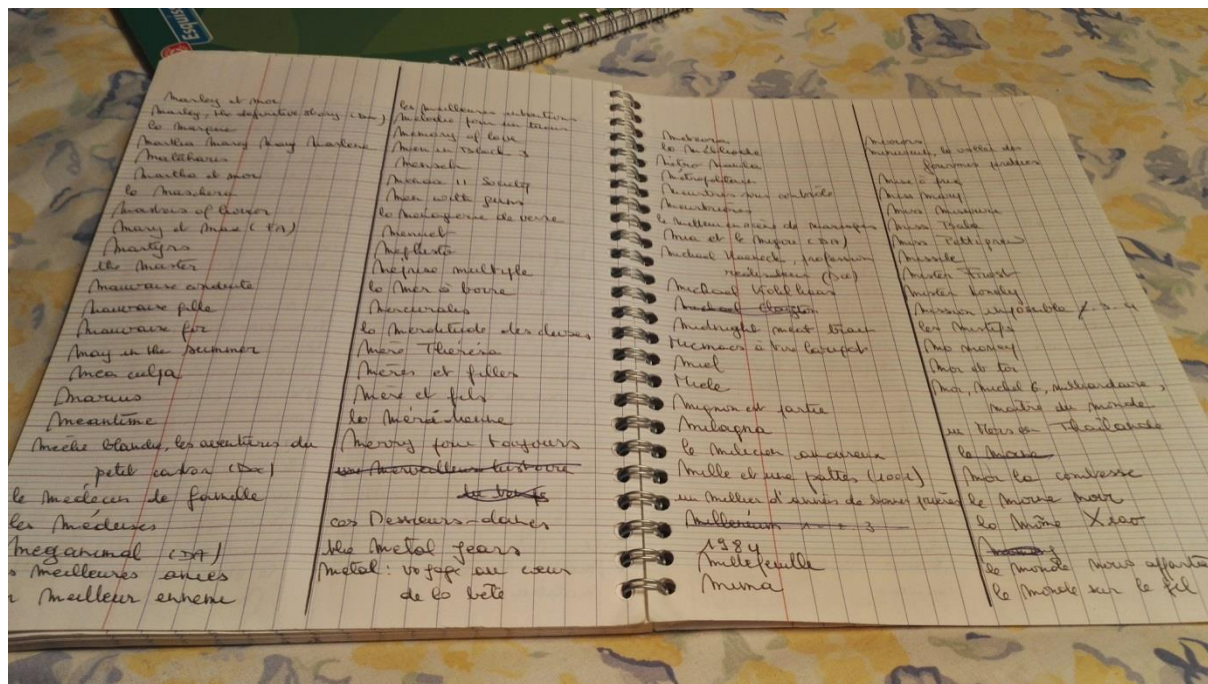 Marley et moi
Marley, the definitive story (Doc)
la marque
Martha Marcy May Marlene
Matahari
Martha et moi
la maschera
Masters of horror
Mary et Max (DA)
Martyrs
the Master
Mauvaise conduite
Mauvaise fille
Mauvaise foi
May in the summer
Mea culpa
Marius
Meantime
Mèche blanche, les aventures du
petit castor (Doc)
le médecin de famille
les Méduses
Meganimal (DA)
meilleures amies
meilleur ennemi
les meilleures intentions
Mélodie pour un tueur
Memory of love
Men in Black 3
Mensch
Menace II Society
Men with guns
la ménagerie de verre
Manuel
Mephisto
Méprise multiple
la Mer à boire
Mercuriales
la Merditude des choses
Mère Thérésa
Mères et filles
Mère et fils
la méré-menne
Merry pour toujours
une merveilleuse histoire
du temps
ces Messieurs-dames
the Metal gears
Metal: voyage au cœur
de la bête
Meteora
le Métériode
Métro Manila
Métropolitain
Meurtres sous contrôle
Meurtrières
le meilleur de mariages
Mia et le Migou (DA)
Michael Haneke, profession
réalisateur (Doc)
Michael Kohlhaas
Michael Clayton
Midnight meat train
Micmacs à tire larigot
Miel
Miele
Mignon est partie
Milagna
le milicien amoureux
Mille et une pattes (1001)
un millier d'années de bonnes prières
Millenium 1 - 2 3
1984
Millefeuille
Mima
Misérs
Minuscule, la vallée des
fourmis perdues
Mise à prix
Miss Mary
Miss Muerte
Miss Bala
Miss Pettigrew
Missile
Mister Frost
Mister Lonely
Mission impossible 1. 3. 4
les Mistefs
Mo money
Moi et toi
Moi, Michel G, milliardaire,
maître du monde
un Mois en Thaïlande
le moine
Moi la comtesse
le Moine noir
la môme Xiao
le monde nous appartient
le monde sur le fil